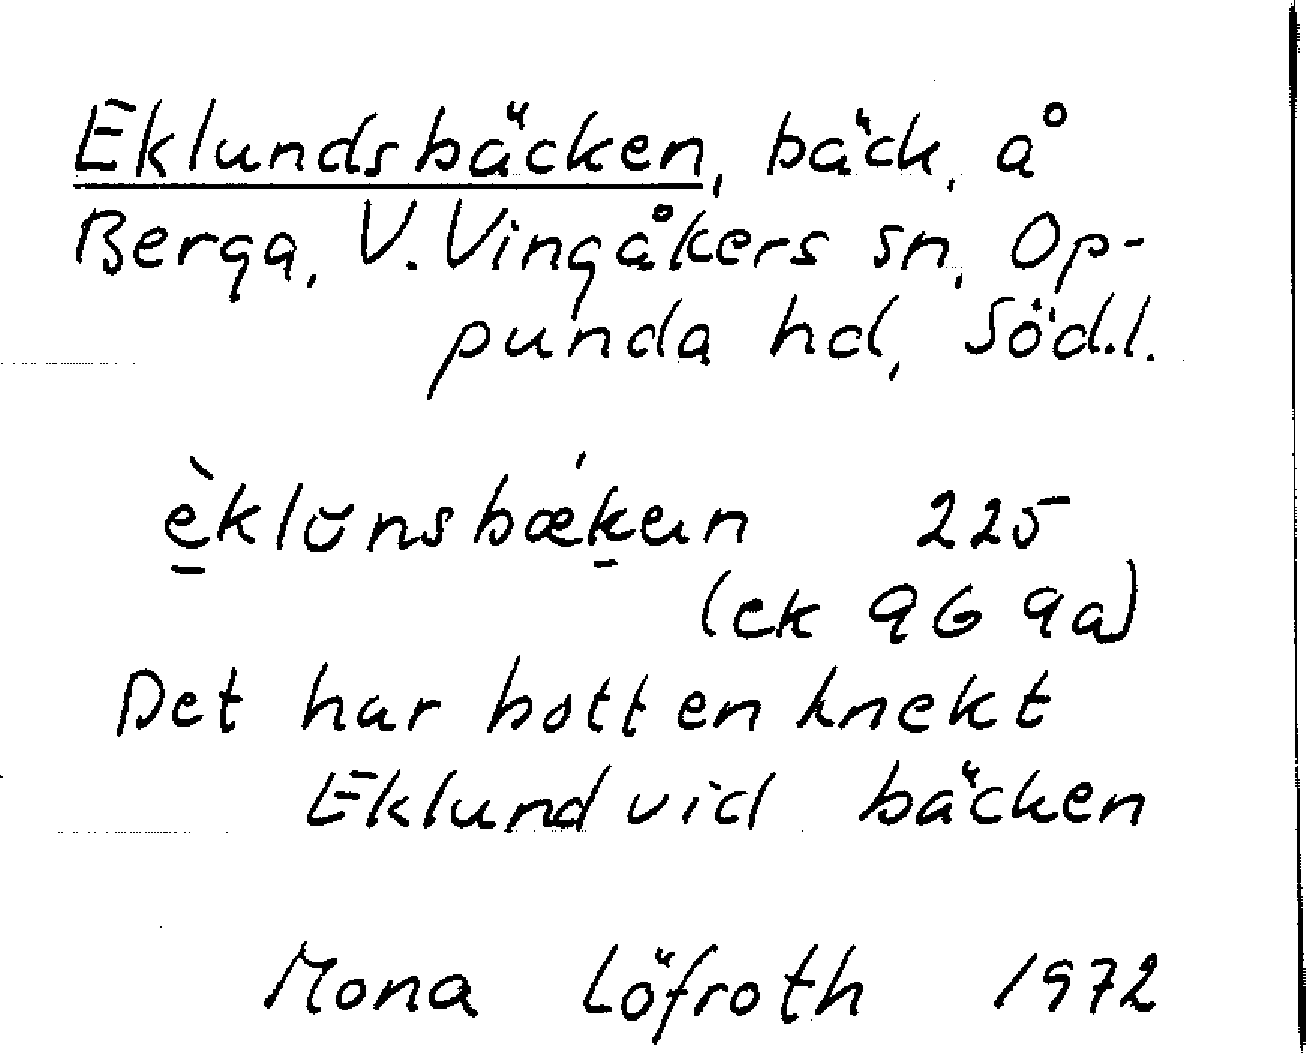 Eklundsbäcken, bäck, å
Berga, V. Vingåkers sn, Op-
punda hd, Södl.
èklŭnsbækan 225
(ek 9G 9a)
Det har bott en knekt
Eklund vid bäcken
Mona Löfroth 1972